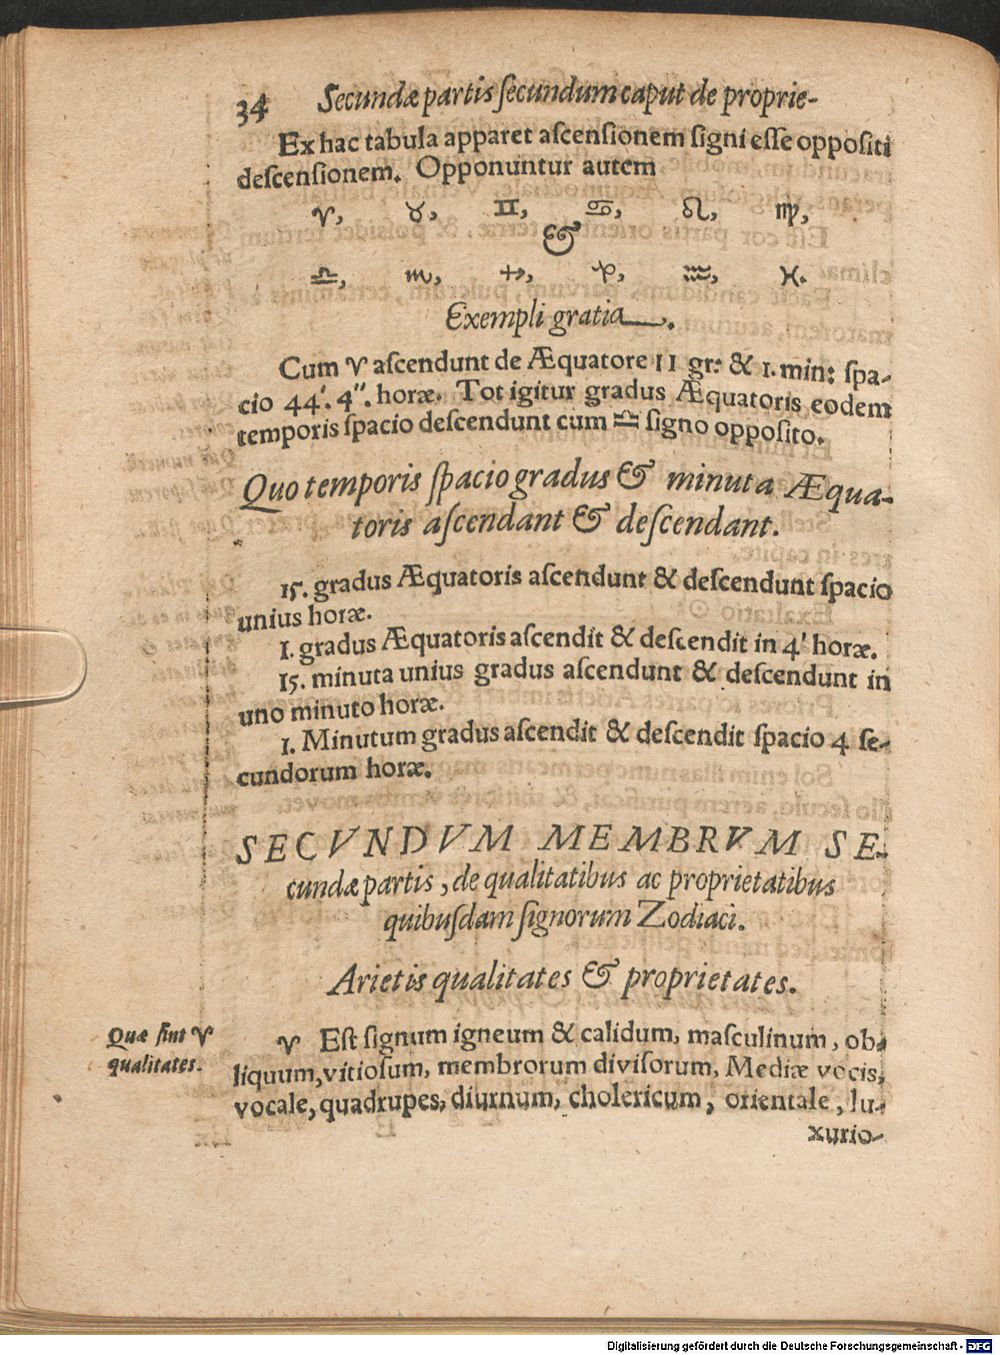 34 Secundæ partis ſecundum caput de proprie-
Ex hac tabula apparet aſcenſionem ſigni eſſe oppoſiti
deſcenſionem. Opponuntur autem
♈, ♉, ♊, ♋, ♌, ♍,
&
♎, ♏, ♐, ♑, ♒, ♓.
Exempli gratia.
Cum ♈ aſcendunt de Æquatore 11 gr: & 1. min: ſpa-
cio 44'. 4''. horæ. Tot igitur gradus Æquatoris eodem
temporis ſpacio deſcendunt cum ♎ ſigno oppoſito.
Quo temporis ſpacio gradus & minuta Æqua-
toris aſcendant & deſcendant.
15. gradus Æquatoris aſcendunt & deſcendunt ſpacio
unius horæ.
1. gradus Æquatoris aſcendit & deſcendit in 4' horæ.
15. minuta unius gradus aſcendunt & deſcendunt in
uno minuto horæ.
1. Minutum gradus aſcendit & deſcendit ſpacio 4 ſe-
cundorum horæ.
SECVNDVM MEMBRVM SE-
cundæ partis, de qualitatibus ac proprietatibus
quibuſdam ſignorum Zodiaci.
Arietis qualitates & proprietates.
Quæ ſint ♈
qualitates.
♈ Eſt ſignum igneum & calidum, maſculinum, ob-
liquum, vitioſum, membrorum diviſorum, Mediæ vocis,
vocale, quadrupes, diurnum, cholericum, orientale, lu-
xurio-
Digitalisierung gefördert durch die Deutsche Forschungsgemeinschaft - DFG